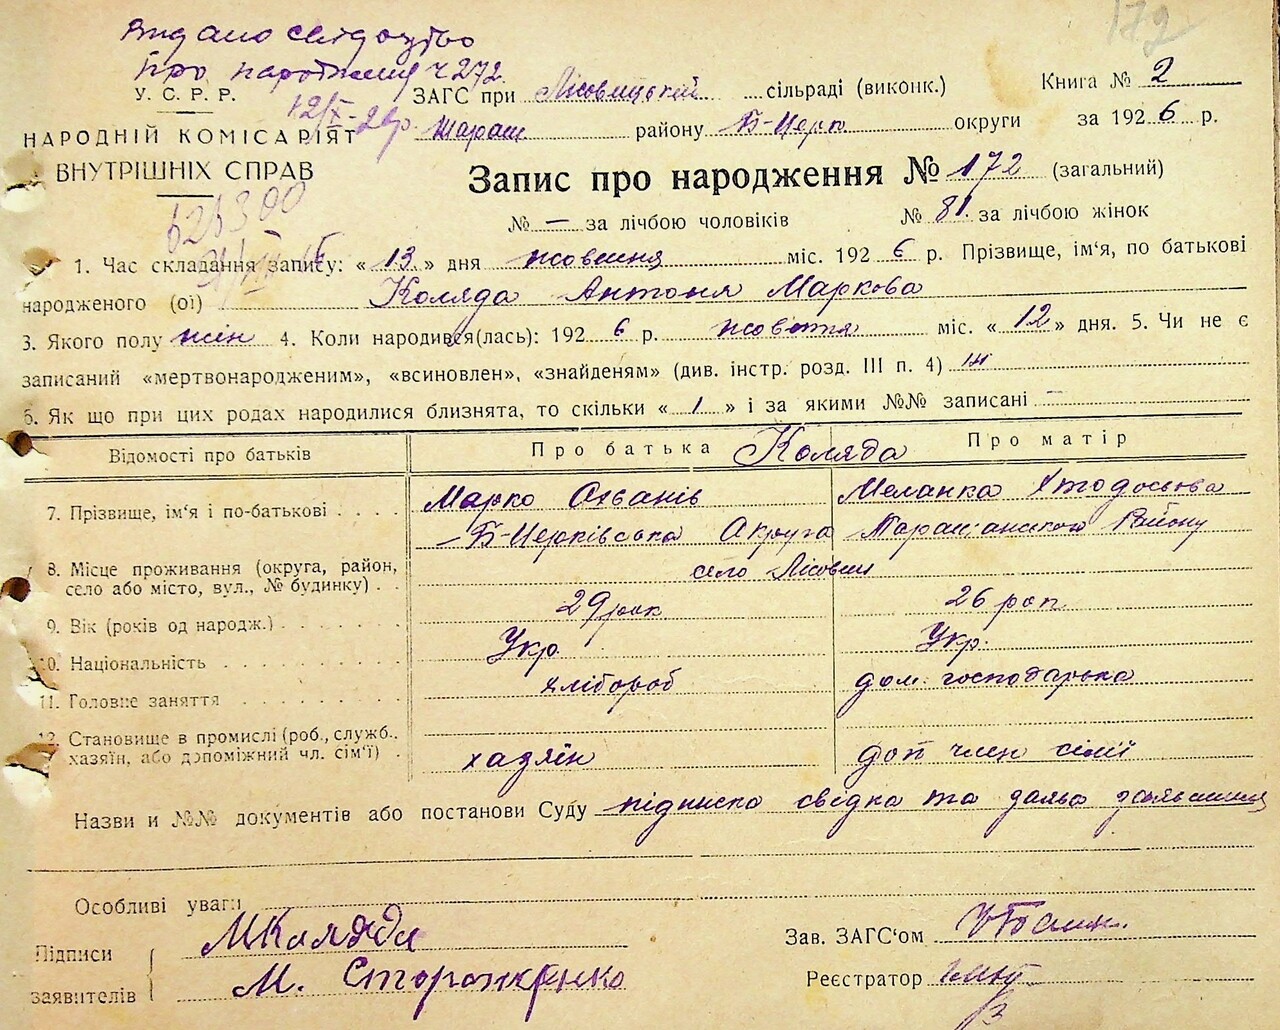 172
Видано свідоцтво
про народження ч 272
12/X-26р.
У. С. Р. Р.
НАРОДНІЙ КОМІСАРІЯТ
ВНУТРІШНІХ СПРАВ
ЗАГС при Лісовицькій сільраді (виконк.) Книга № 2
Тараш району Б-Церк округи за 1926 р.
Запис про народження № 172 (загальний)
№ — за лічбою чоловіків № 81 за лічбою жінок
1. Час складання запису: « 13 » дня жовтня міс. 1926 р. Прізвище, ім'я, по батькові
народженого (ої) Коляда Антоня Маркова
3. Якого полу жін 4. Коли народився(лась): 1926 р. жовтня міс. « 12 » дня. 5. Чи не є
записаний «мертвонародженим», «всиновлен», «знайденям» (див. інстр. розд. III п. 4) ні
6. Як що при цих родах народилися близнята, то скільки « 1 » і за якими №№ записані —
Відомості про батьків Про батька Коляда Про матір
7. Прізвище, ім'я і по-батькові Марко Меланка
Б-Церківська Округа Таращанського Району
8. Місце проживання (округа, район, село або місто, вул., № будинку) село Лісович
9. Вік (років од народж.) 29 рок 26 рок
10. Національність Укр Укр.
11. Головне заняття хлібороб дом. господарька
12. Становище в промислі (роб., службо., хазяїн, або допоміжний чл. сім'ї) хазяїн доп член сімї
Назви и №№ документів або постанови Суду підписка свідка та
Особливі уваги
Підписи заявителів МКаляда
М. Стороженко
Зав. ЗАГС'ом
Реєстратор